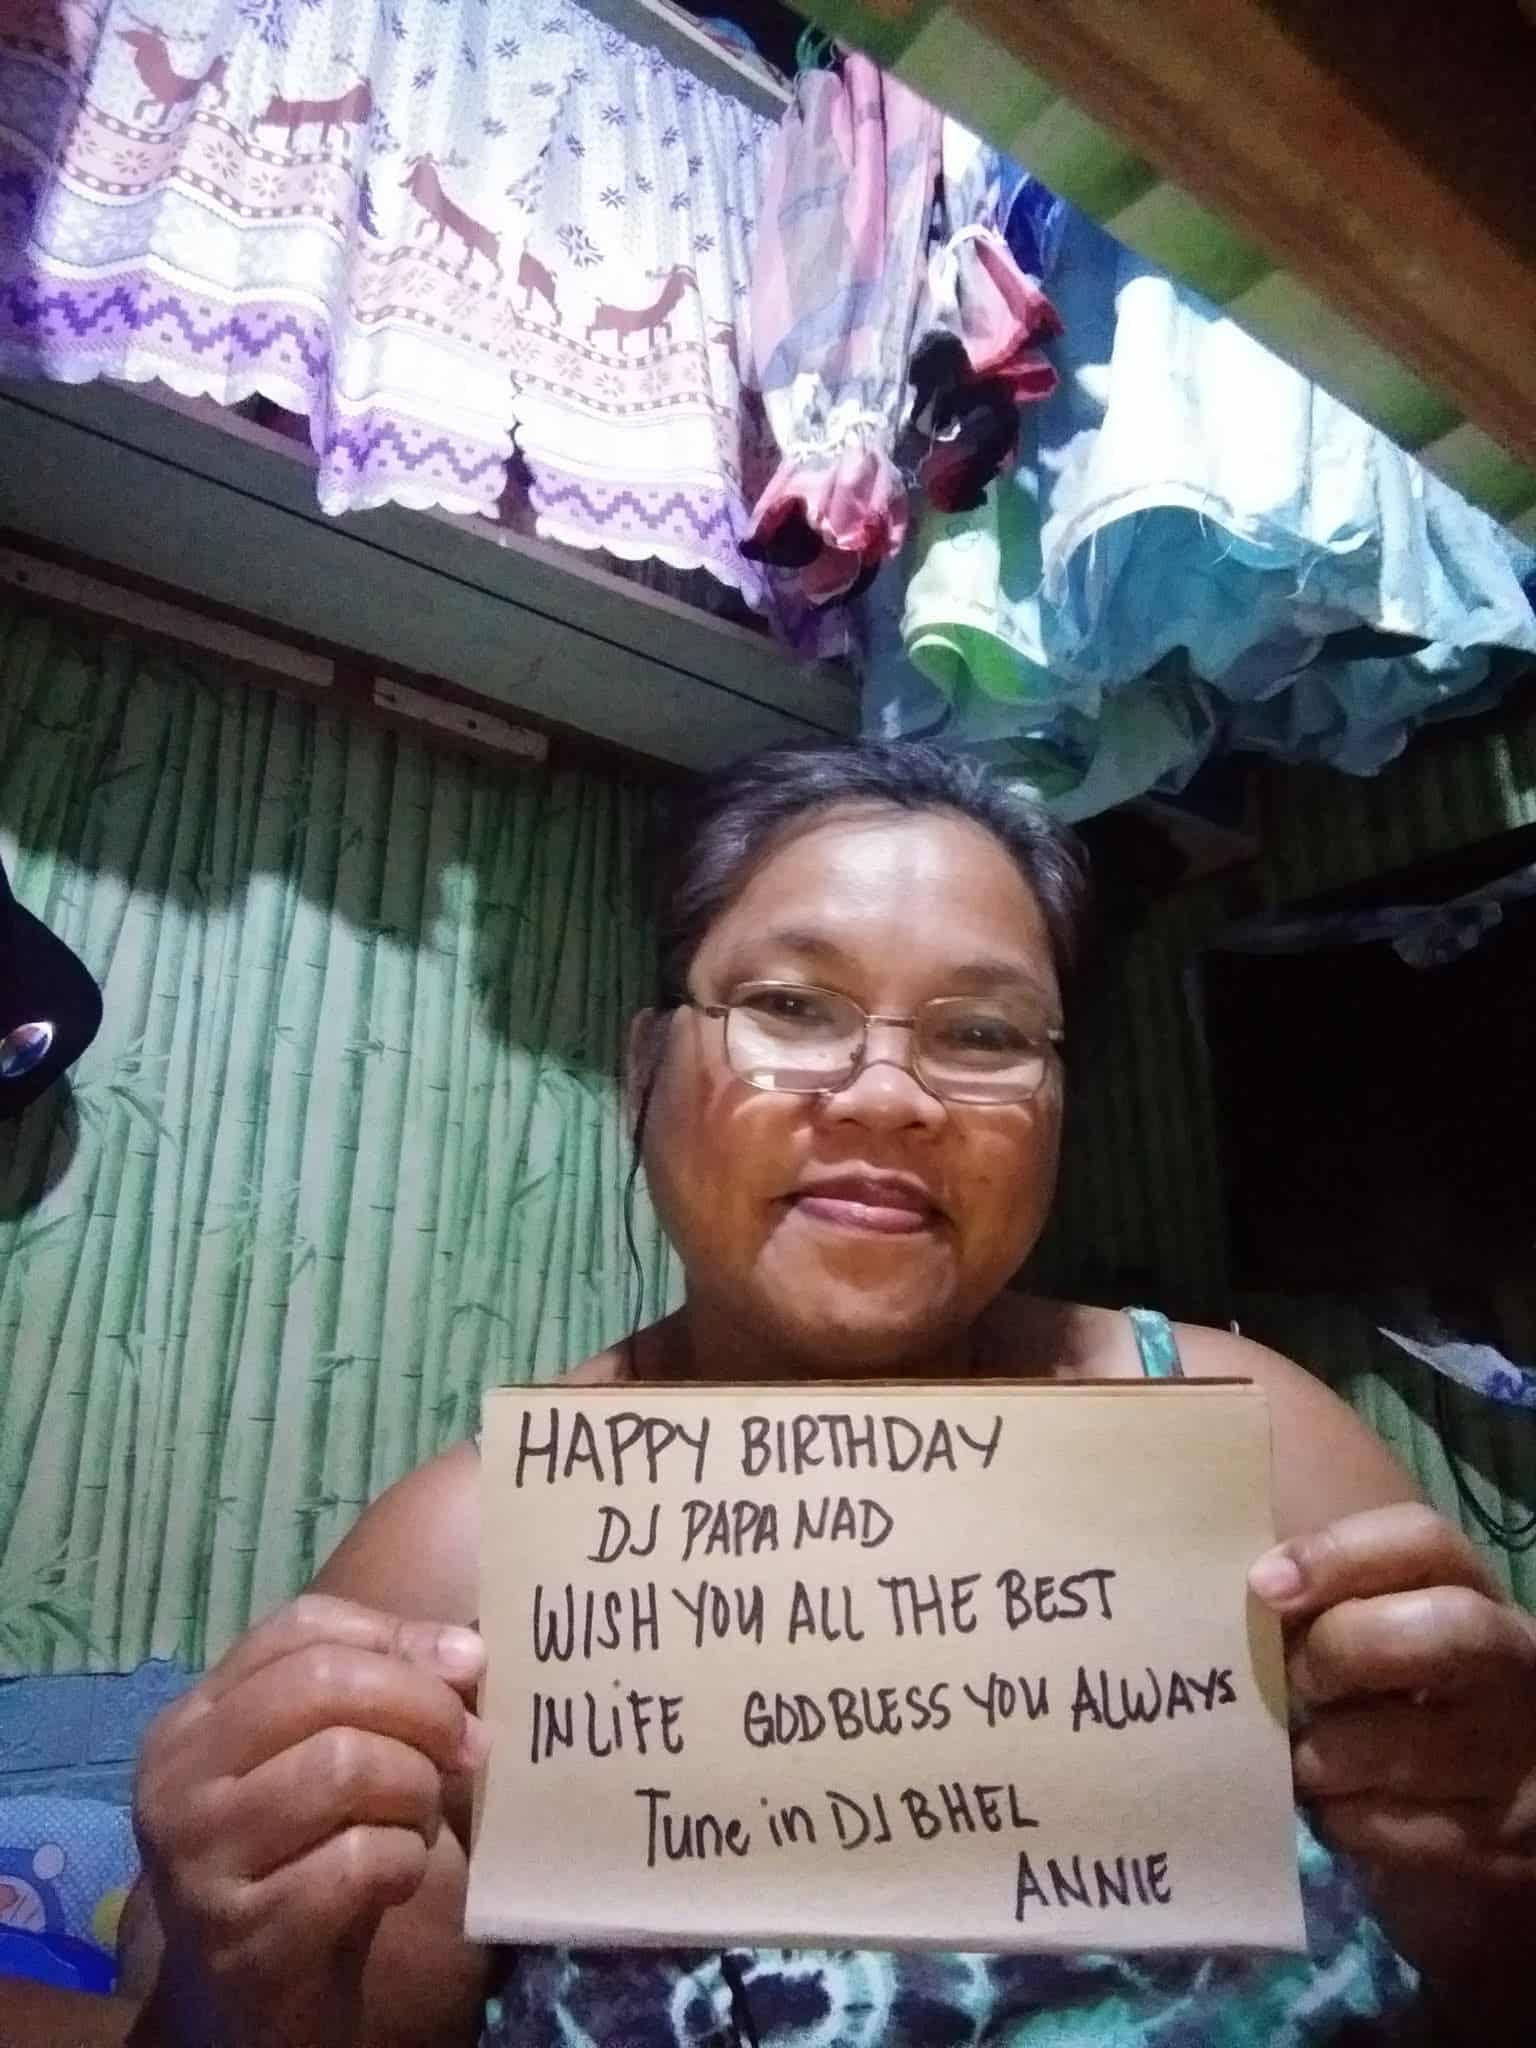 HAPPY BIRTHDAY
DJ PAPA NAD
WISH YOU ALL THE BEST
IN LiFE GOD BLESS YOU ALWAYS
Tune in DJ BHEL
ANNIE